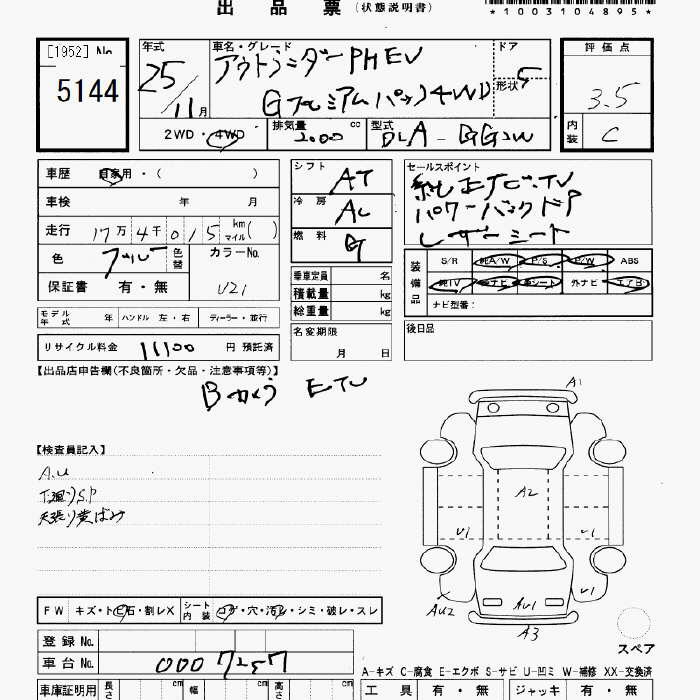 出品票(状態説明書)
*1003104895*
[1952] No
5144
年式 25/11月
車名・グレード アウトランダーPHEV
Gプレミアムパック 4WD
ドア 5
形状
評価点 3.5
内装 C
2WD・4WD
排気量 2000 cc
型式 DLA-GG2W
車歴 自家用・( )
車検 年 月
走行 17万4千015 km マイル( )
色 ブルー 色替
カラーNo. U21
保証書 有・無
シフト AT
冷房 AC
燃料 G
乗車定員 名
積載量 kg
総重量 kg
名変期限 月 日
セールスポイント
純正ナビ.TV
パワーバックドア
レザーシート
装備品 S/R 純A/W P/S P/W ABS
純TV 純ナビ 革シート 外ナビ エアB
ナビ型番:
後日品
モデル年式 年 ハンドル 左・右 ディーラー・並行
リサイクル料金 11100 円 預託済
【出品店申告欄(不良箇所・欠品・注意事項等)】
Bカメラ ETC
【検査員記入】
A.U
下廻りS.P
天張り黄ばみ
A1
A2
U1
U1
U1
AU2
AU1
A3
スペア
FW キズ・トビ石・割レX シート内装 コゲ・穴・汚レ・シミ・破レ・スレ
登録 No.
車台 No. 0007257
A-キズ C-腐食 E-エクボ S-サビ U-凹ミ W-補修 XX-交換済
車庫証明用 長さ cm 幅 cm 高さ cm
工具 有・無 ジャッキ 有・無